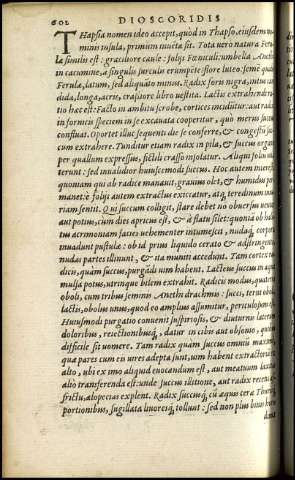 602 DIOSCORIDIS
THapsia nomen ideo accepit, quòd in Thapso, eiusdem no
minis insula, primùm inuēta sit. Tota uero natura Feru
læ similis est: graciliore caule: folijs Fœniculi: umbella Anethi
in cacumine, à singulis surculis erumpēte: flore luteo. semē quale
Ferulæ, latum, sed aliquāto minus. Radix foris nigra, intus cā
dida, longa, acris, crassiore libro uestita. Lactis extrahendi ra
tio hæc est: Facto in ambitu scrobe, cortices inciditur: aut radix
in fornicis speciem in se excauata cooperitur, quò merus succus
confluat. Oportet illuc sequenti die se conferre, & congestū suc
cum extrahere. Tunditur etiam radix in pila, & succus organo
per qualum expressus, fictili crasso insolatur. Aliqui folia unà
terunt: sed inualidior huiuscemodi succus. Hoc autem interest,
quoniam qui ab radice manauit, grauius olet, & humidus per
manet: è folijs autem extractus exiccatur, atq; teredinum iniu
riam sentit. Qui succum colligit, stare debet no obuersus uento
aut potius, cùm dies apricus est, & à flatu silet: quoniā ob hali
tus acrimoniam facies uehementer intumescit, nudaq; corporis
inuadunt pustulæ: ob id prius liquido cerato & adstringente
nudas partes illinunt, & ita muniti accedunt. Tam cortex ra
dicis, quàm succus, purgādi uim habent. Lacteus succus in aqua
mulsa potus, utrinque bilem extrahit. Radicis modus, quaterni
oboli, cum tribus seminis Anethi drachmis: succi, terni oboli:
lactis, obolus unus, quòd eo amplius assumitur, periculosum est.
Huiusmodi purgatio conuenit suspiriosis, & diuturnis laterum
doloribus, reiectionibusq;. datur in cibis aut obsonio, quibus
difficile sit uomere. Tam radix quàm succus omnium maximè
quæ pares cum eis uires adepta sunt, uim habent extractoriā ex
alto, ubi ex imo aliquid euocandum est, aut meatuum habitus
aliò transferenda est: unde succus illitione, aut radix recens af
frictu, alopecias explent. Radix succusq;, cū æquis tere a Thuris
portionibus, sugillata liuoresq; tollunt: sed non plus binis horis